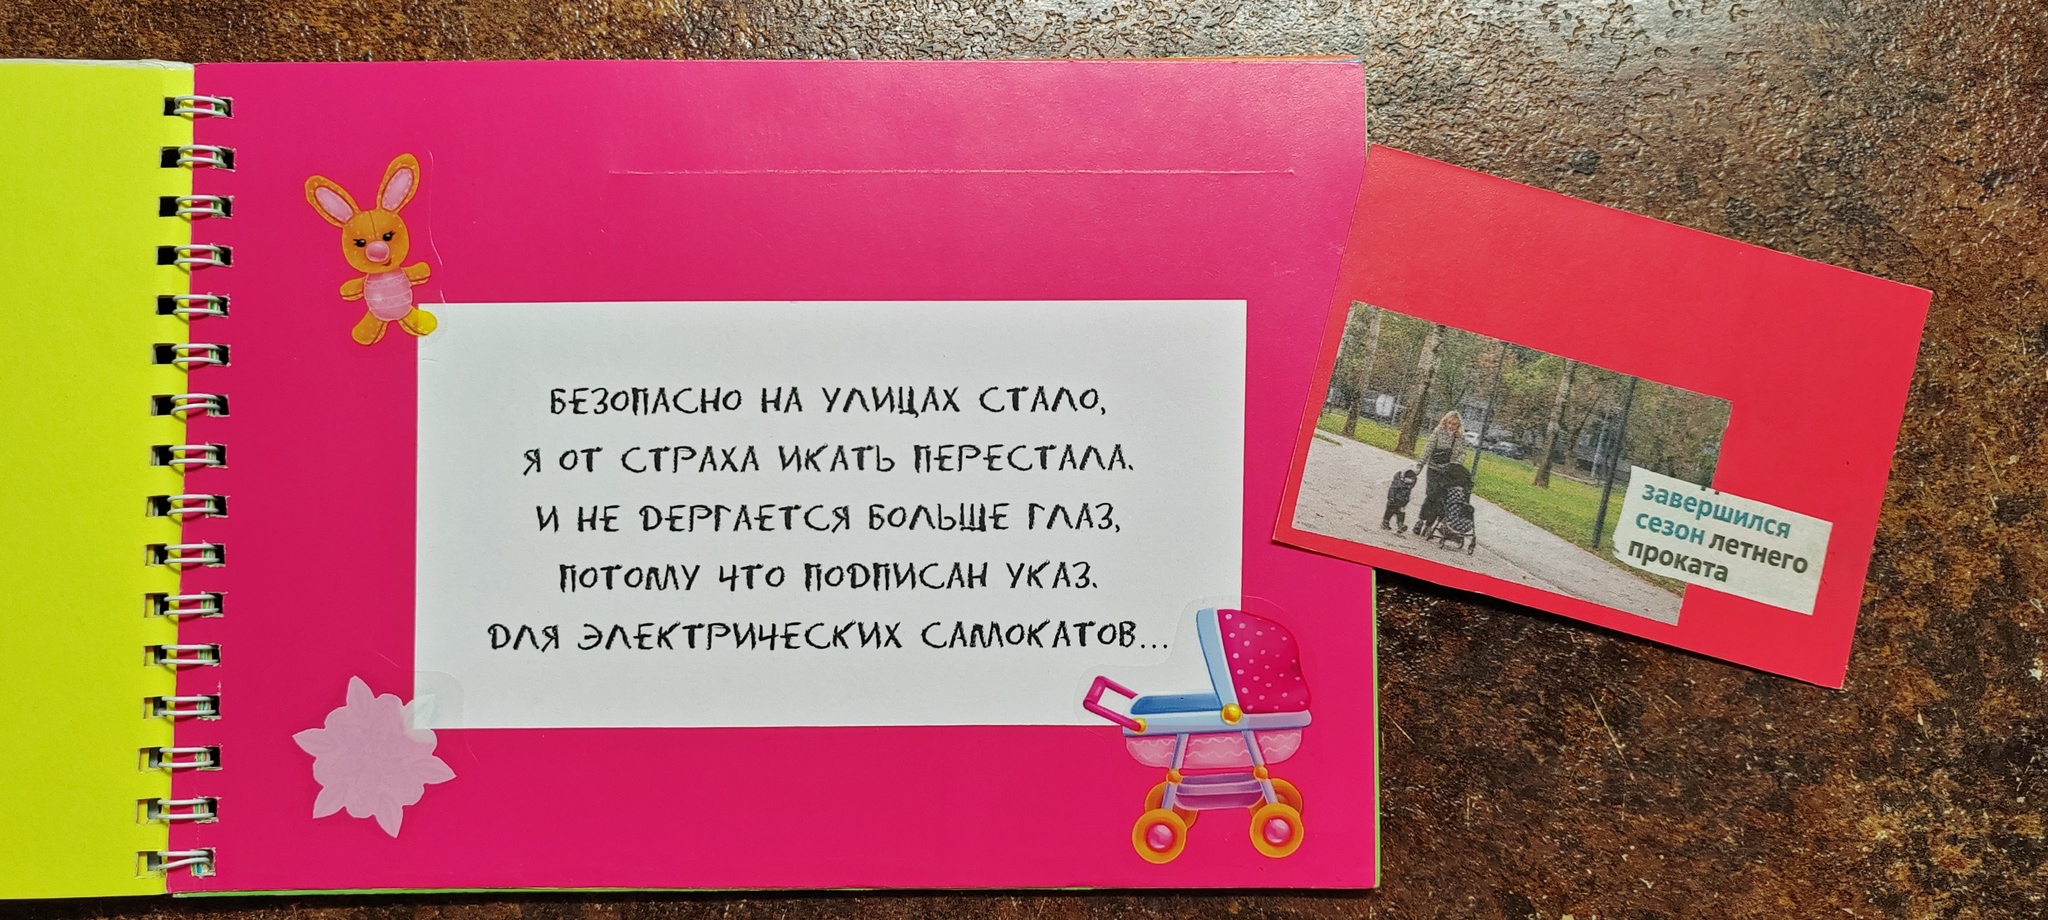 БЕЗОПАСНО НА УЛИЦАХ СТАЛО,
Я ОТ СТРАХА ИКАТЬ ПЕРЕСТАЛА.
И НЕ ДЕРГАЕТСЯ БОЛЬШЕ ГЛАЗ,
ПОТОМУ ЧТО ПОДПИСАН УКАЗ.
ДЛЯ ЭЛЕКТРИЧЕСКИХ САМОКАТОВ...
завершился
сезон летнего
проката